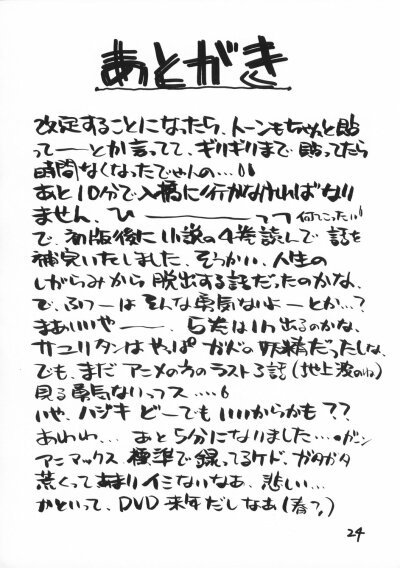 あとがき
改定することになったら、トーンもちゃんと貼
って──とか言ってて、ギリギリまで貼ってたら
時間なくなったでやんの…!!
あと10分で入稿に行かなければなり
ません、ひ────っっ 何てこったい!!
で、初版後に小説の4巻読んで話を
補完いたしました、そうかい、人生の
しがらみから脱出する話だったのかな、
で、ふつーはそんな勇気ないよーとか…?
まあいいや──、5巻はいつ出るのかな、
サユリタンはやっぱガドの妖精だったしな、
でも、まだアニメの方のラスト3話(地上波のね)
見る勇気ないっつス....。
いや、ハジキどーでもいいからかも??
あわわ… あと5分になりました…。ガーン
アニマックス標準で録ってるケド、ガタガタ
荒くってあまりイミないなあ、悲しい…
かといって、DVD来年だしなあ(春?)
24